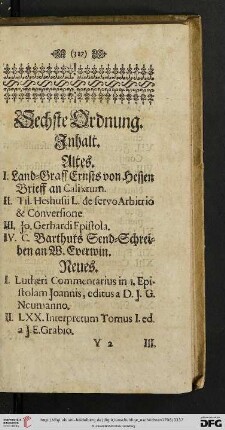 (327)
Sechste Ordnung.
Inhalt.
Altes.
I. Land-Graff Ernsts von Hessen
Brieff an Calixtum.
II. Til. Heshusii L. de servo Arbitrio
& Conversione
III. Jo. Gerhardi Epistola.
IV. C. Barthuts Send-Schrei-
ben an W. Everwin.
Neues.
I. Lutheri Commentarius in 1. Epi-
stolam Joannis, editus a D. J. G.
Neumanno.
II. LXX. Interpretum Tomus I. ed.
a J. E. Grabio.
Y 2
III.
DFG